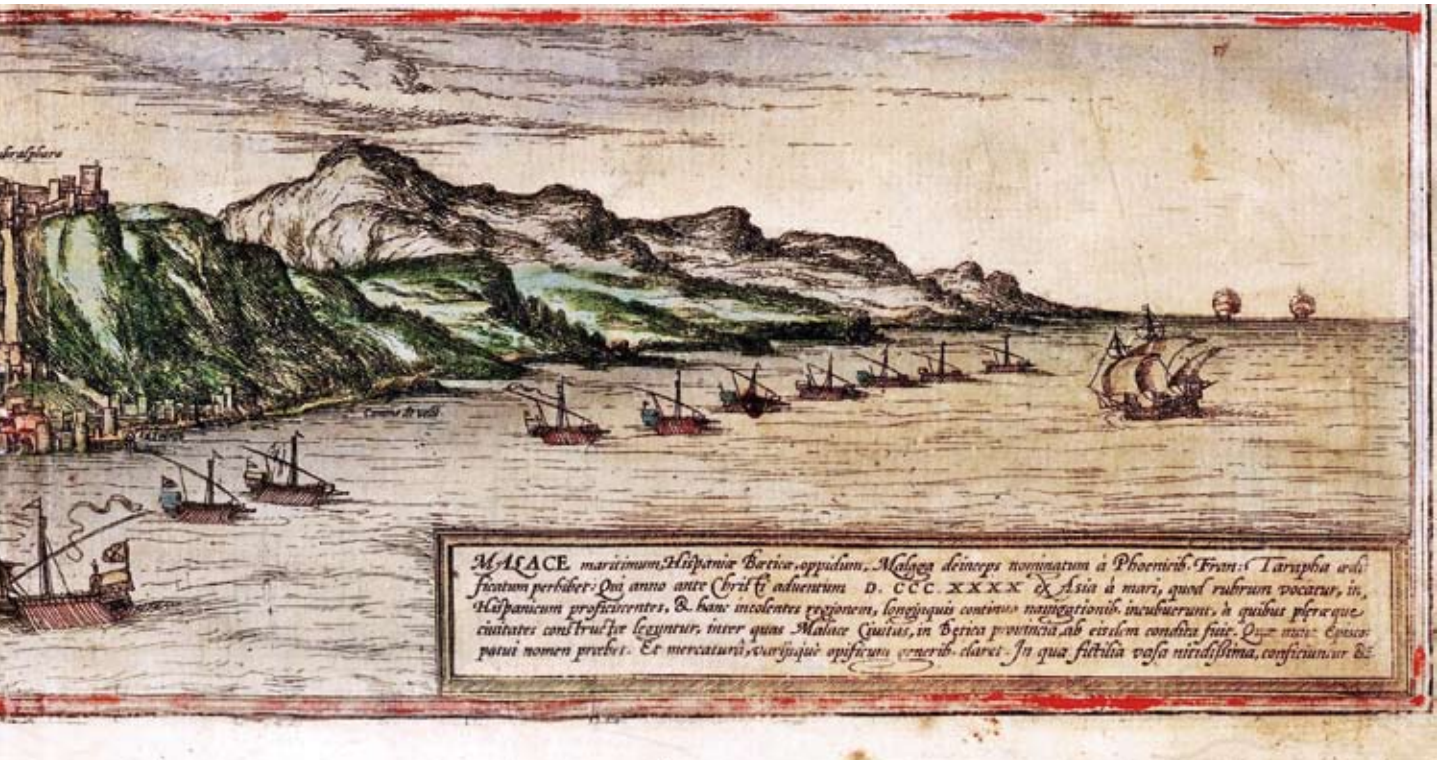 MALACE maritimum, Hispaniæ Bœticæ, oppidum, Malaga deinceps nominatum à Phoenicib. Fran: Tarapha ædi
ficatum perhibet: Qui anno ante Christi aduentum D. CCC. XXXX ex Asia à mari, quod rubrum vocatur, in,
Hispanicum proficiscentes, & hanc incolentes regionem, longinquis continuo nauigationib. incubuerunt, à quibus pleræque
ciuitates constructæ leguntur, inter quas Malace Ciuitas, in Betica prouincia, ab eisdem condita fuit. Quæ nunc Episco:
patui nomen præbet. Et mercatura, varijsque opificum generib. claret. In qua fictilia vasa nitidissima, conficiuntur &c